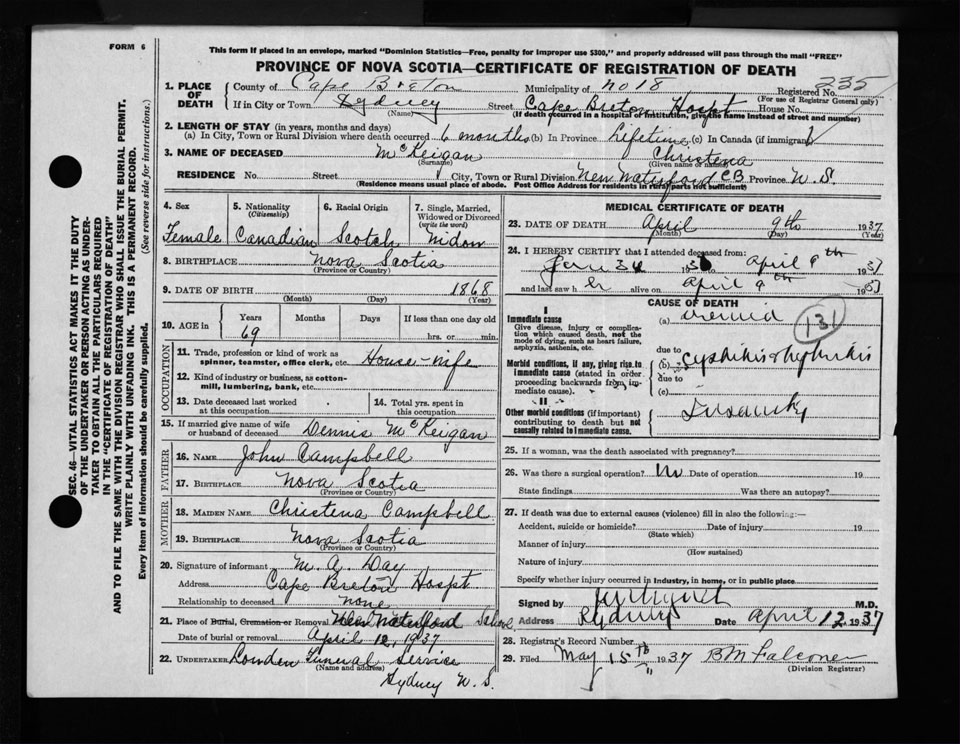 FORM 6
This form if placed in an envelope, marked "Dominion Statistics—Free, penalty for improper use $300," and properly addressed will pass through the mail "FREE"
PROVINCE OF NOVA SCOTIA—CERTIFICATE OF REGISTRATION OF DEATH
SEC. 46—VITAL STATISTICS ACT MAKES IT THE DUTY
OF THE UNDERTAKER OR PERSON ACTING AS UNDER-
TAKER TO OBTAIN ALL THE PARTICULARS REQUIRED
IN THE "CERTIFICATE OF REGISTRATION OF DEATH"
AND TO FILE THE SAME WITH THE DIVISION REGISTRAR WHO SHALL ISSUE THE BURIAL PERMIT.
WRITE PLAINLY WITH UNFADING INK. THIS IS A PERMANENT RECORD.
Every item of information should be carefully supplied. (See reverse side for instructions.)
1. PLACE OF DEATH County of Cape Breton Municipality of No 18 Registered No. 235
(For use of Registrar General only)
If in City or Town Sydney Street Cape Breton Hospt House No.
(Name) (If death occurred in a hospital or institution, give the name instead of street and number)
2. LENGTH OF STAY (in years, months and days)
(a) In City, Town or Rural Division where death occurred 6 months (b) In Province Lifetime (c) In Canada (if immigrant)
3. NAME OF DECEASED McKeigan Christena
(Surname) (Given name or names)
RESIDENCE No. Street City, Town or Rural Division New Waterford C.B. Province N.S.
(Residence means usual place of abode. Post Office Address for residents in rural parts not sufficient)
4. Sex Female
5. Nationality (Citizenship) Canadian
6. Racial Origin Scotch
7. Single, Married, Widowed or Divorced (write the word) Widow
8. BIRTHPLACE Nova Scotia
(Province or Country)
9. DATE OF BIRTH 1868
(Month) (Day) (Year)
10. AGE in Years Months Days If less than one day old
69 hrs. or min.
OCCUPATION
11. Trade, profession or kind of work as spinner, teamster, office clerk, etc. House-wife
12. Kind of industry or business, as cotton-mill, lumbering, bank, etc.
13. Date deceased last worked at this occupation
14. Total yrs. spent in this occupation
15. If married give name of wife or husband of deceased Dennis McKeigan
FATHER
16. NAME John Campbell
17. BIRTHPLACE Nova Scotia
(Province or Country)
MOTHER
18. MAIDEN NAME Christena Campbell
19. BIRTHPLACE Nova Scotia
(Province or Country)
20. Signature of informant M. A. Day
Address Cape Breton Hospt
Relationship to deceased none
21. Place of Burial, Cremation or Removal New Waterford
Date of burial or removal April 12, 1937
22. UNDERTAKER Lowden Funeral Service
(Name and address)
Sydney N.S.
MEDICAL CERTIFICATE OF DEATH
23. DATE OF DEATH April 9th 1937
(Month) (Day) (Year)
24. I HEREBY CERTIFY that I attended deceased from
April 9th
and last saw h er alive on April 9th
CAUSE OF DEATH
I
Immediate cause
Give disease, injury or complication which caused death, not the mode of dying, such as heart failure, asphyxia, asthenia, etc.
(a) Uremia
131
due to
Morbid conditions, if any, giving rise to immediate cause (stated in order proceeding backwards from immediate cause).
(b)
due to
(c)
II
Other morbid conditions (if important) contributing to death but not causally related to immediate cause.
Insanity
25. If a woman, was the death associated with pregnancy?
26. Was there a surgical operation? No Date of operation 19
State findings Was there an autopsy?
27. If death was due to external causes (violence) fill in also the following:—
Accident, suicide or homicide? Date of injury 19
(State which)
Manner of injury
(How sustained)
Nature of injury
Specify whether injury occurred in industry, in home, or in public place
Signed by M.D.
Address Sydney Date April 12 1937
28. Registrar's Record Number
29. Filed May 15th 1937 B M Falconer
(Division Registrar)